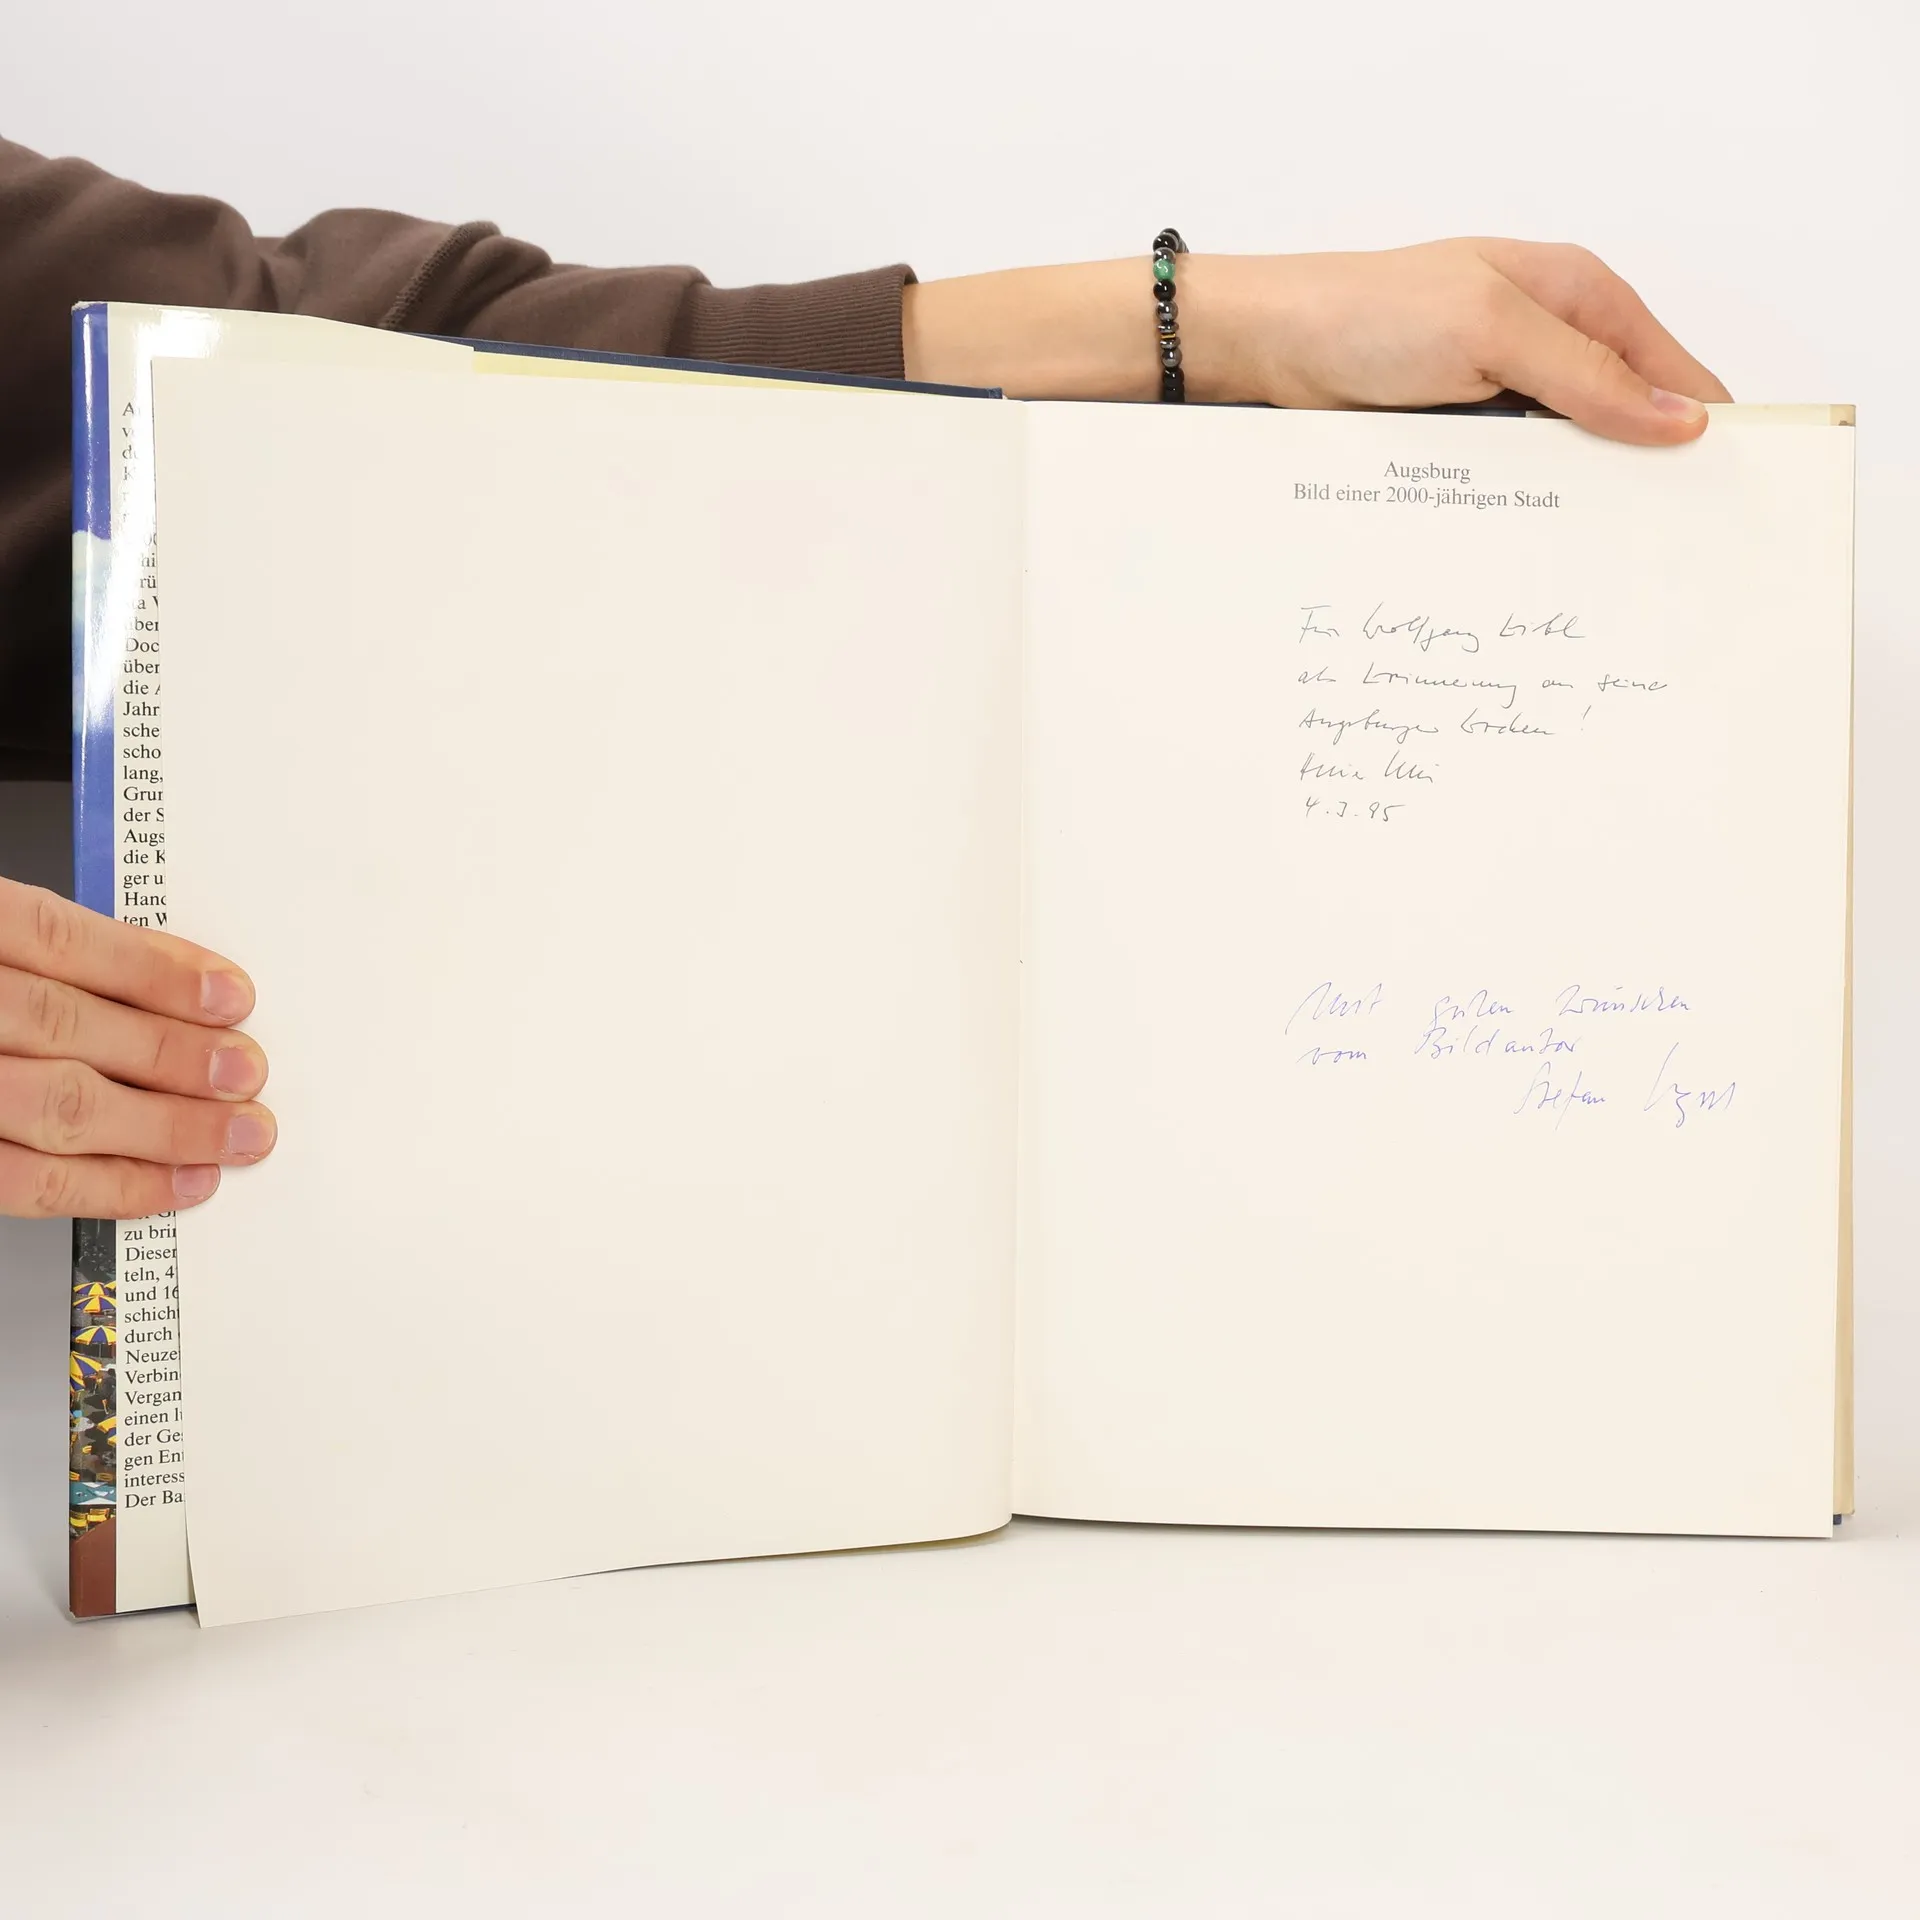 A
v
d
K
hi
rü
a V
ber
Doc
über
die A
Jahr
sche
scho
lang,
Grun
der S
Augs
die K
ger u
Hand
ten W
zu brin
Dieser
teln, 4
und 16
schicht
durch
Neuze
Verbin
Vergan
einen l
der Ge
gen Ent
interess
Der Ba
Augsburg
Bild einer 2000-jährigen Stadt
Für Wolfgang
als Erinnerung an seine
Augsburger !
4.3.95
Mit guten Wünschen
vom Bildautor
Stefan